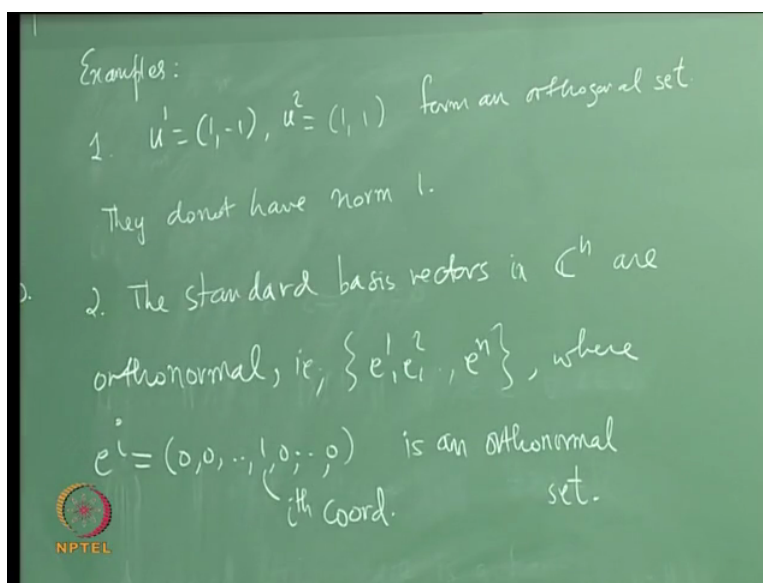 Examples:
1. u¹ = (1,-1), u² = (1,1) form an orthogonal set.
They donot have norm 1.
2. The standard basis vectors in ℂⁿ are
orthonormal, ie, {e¹,e²,..,eⁿ}, where
eⁱ = (0,0,..,1,0,..,0) is an orthonormal
ith coord. set.
NPTEL